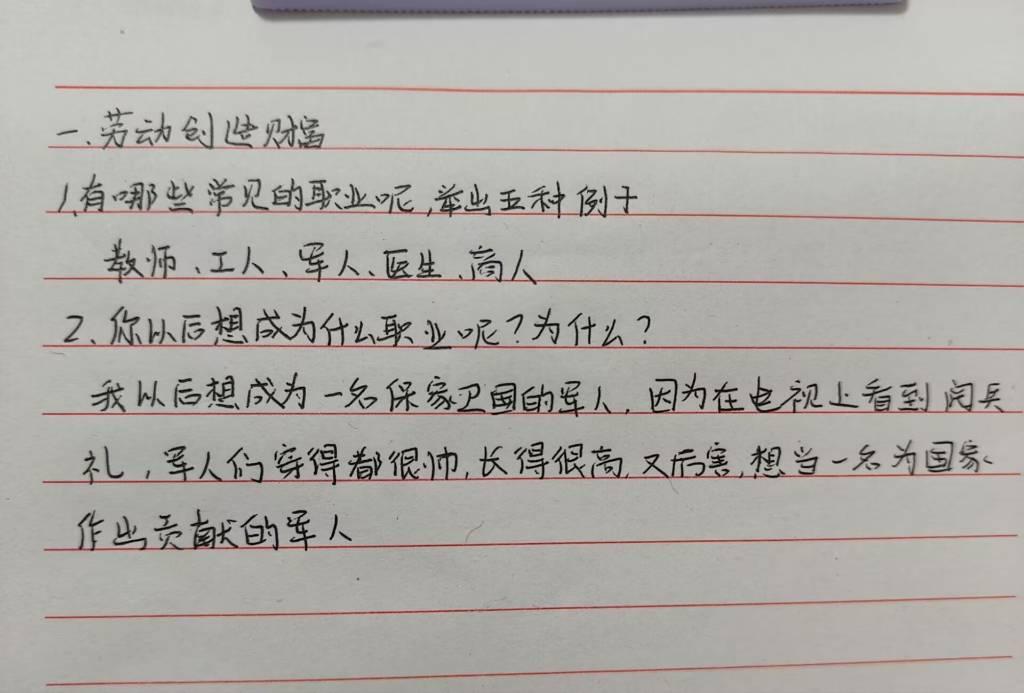 一、劳动创造财富
1、有哪些常见的职业呢,举出五种例子
教师、工人、军人、医生、商人
2、你以后想成为什么职业呢?为什么?
我以后想成为一名保家卫国的军人,因为在电视上看到阅兵
礼,军人们穿得都很帅,长得很高,又厉害,想当一名为国家
作出贡献的军人